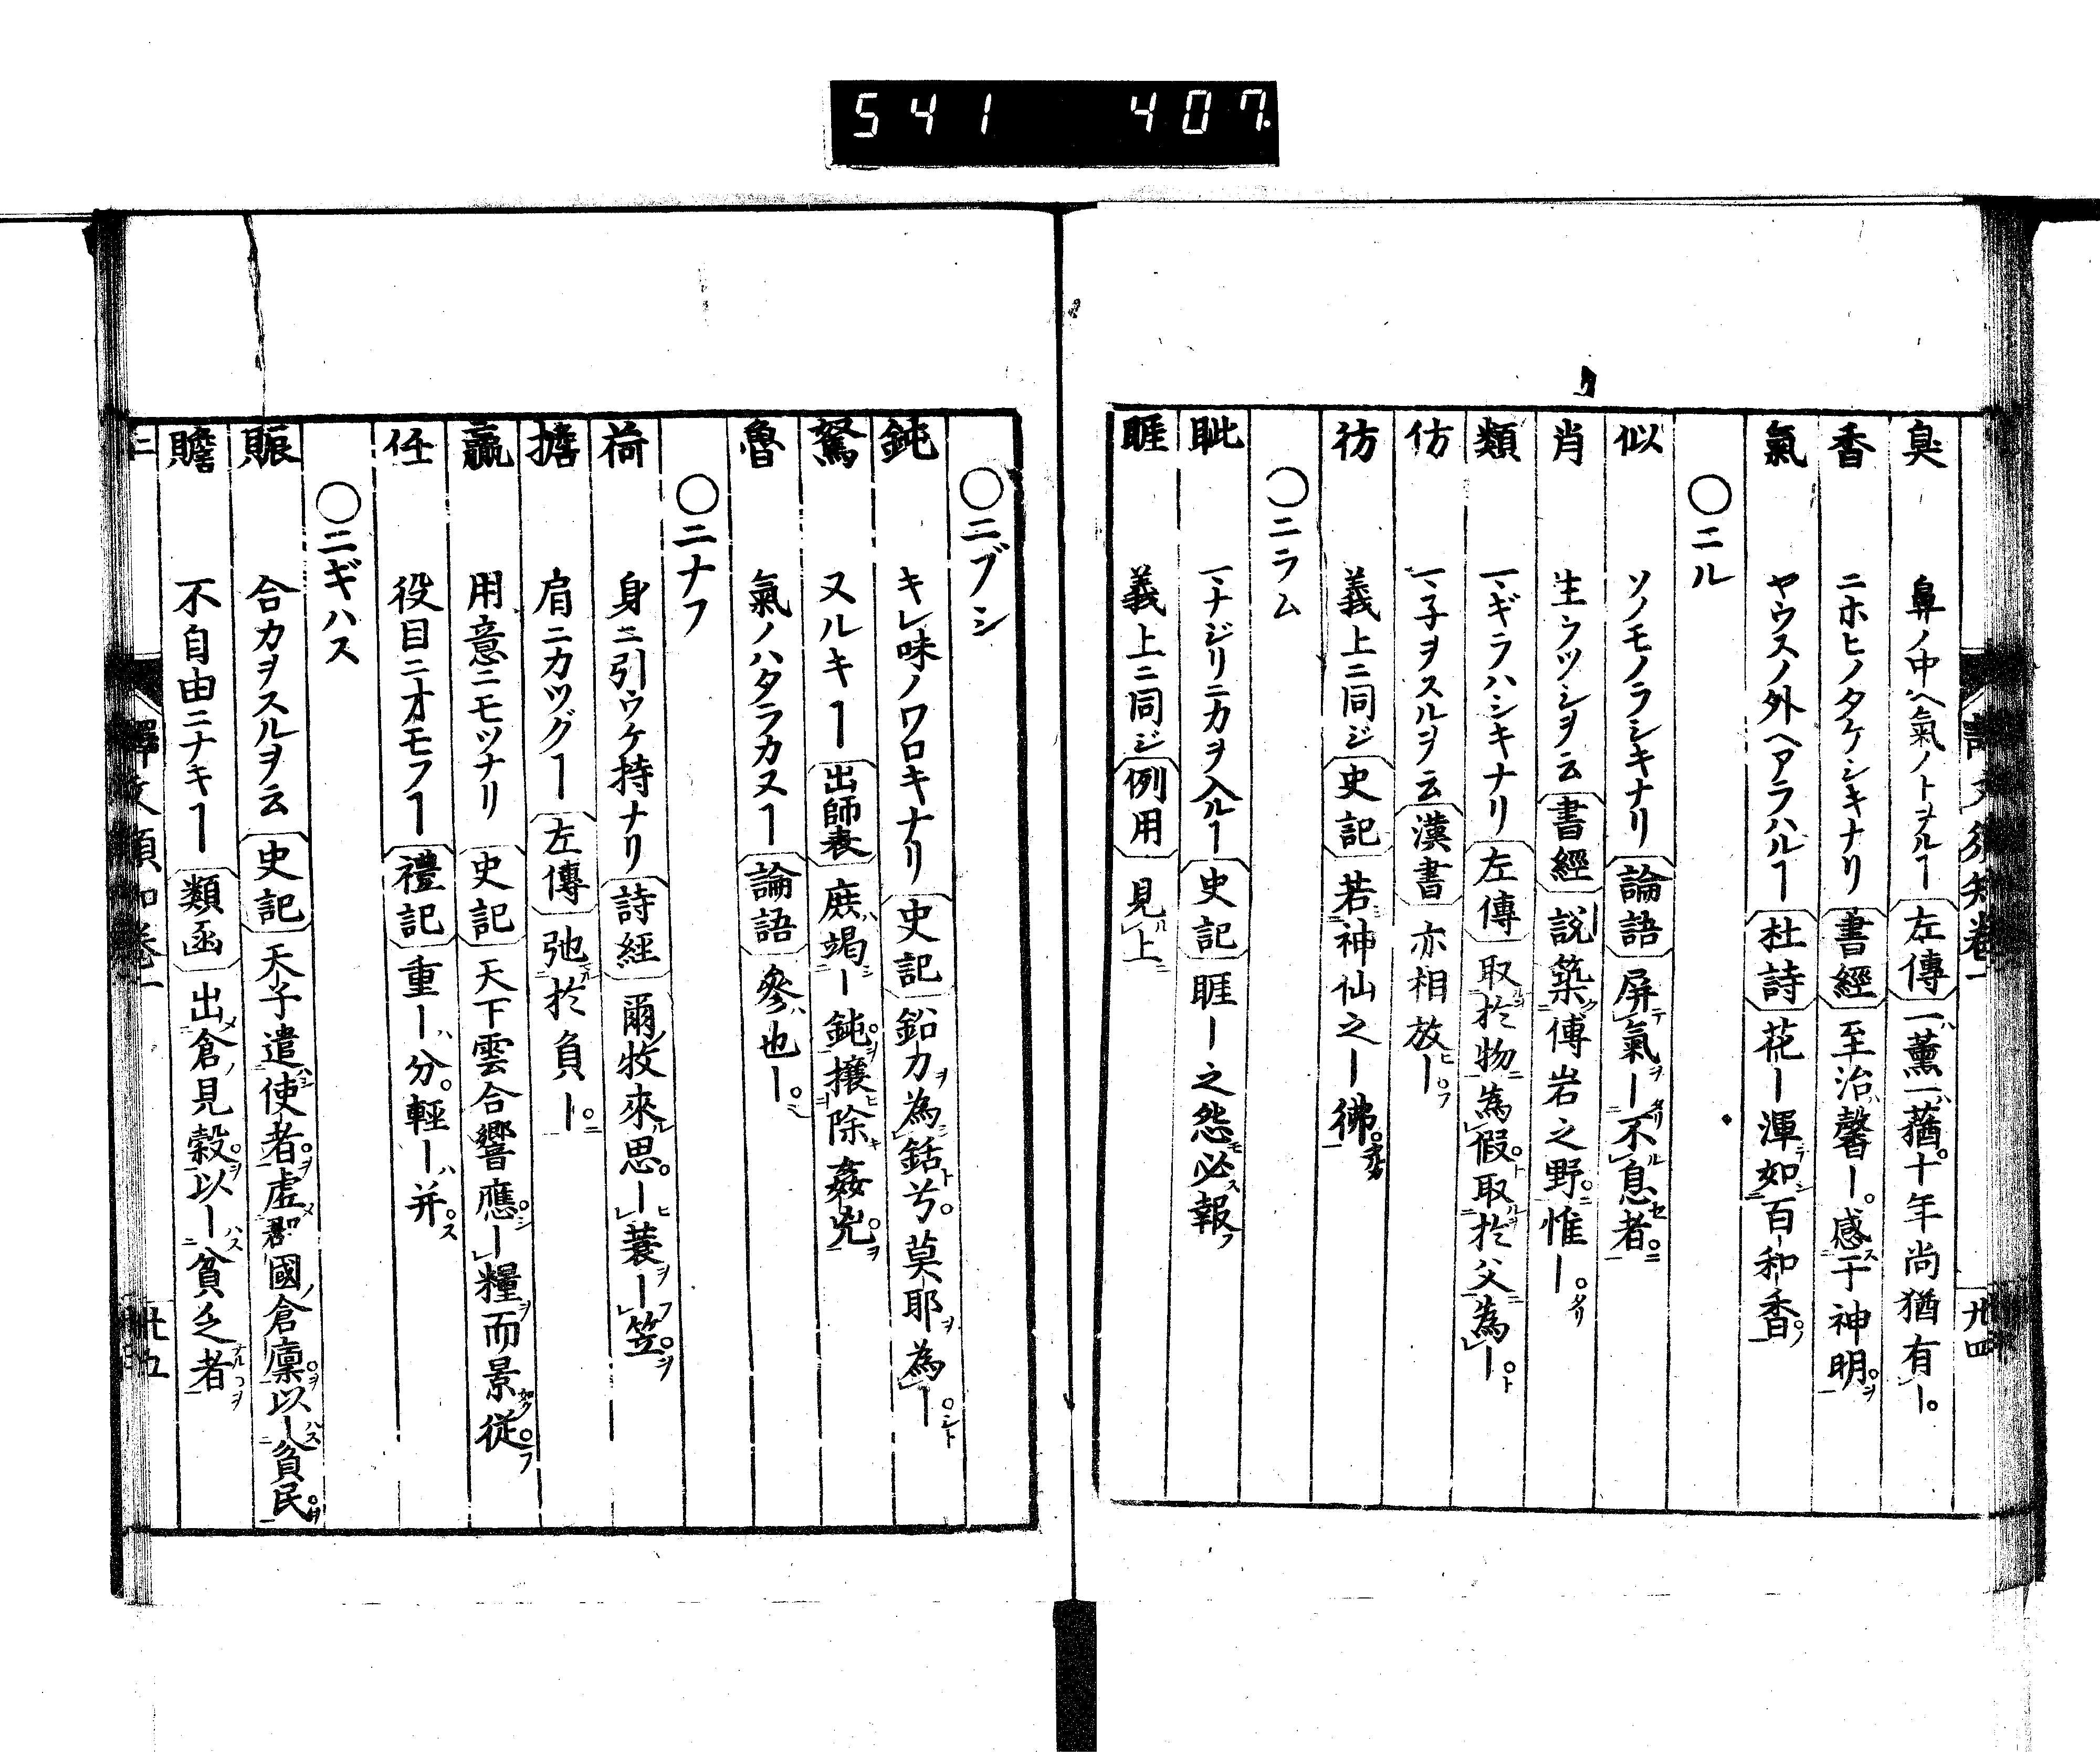 541 407
臭 鼻ノ中ヘ氣ノトヲルヿ 左傳 一薫一蕕十年尚猶有ー
香 ニホヒノタケシキナリ 書經 至治馨ー感于神明
氣 ヤウスノ外ヘアラハルヿ 杜詩 花ー渾如百和香
○ニル
似 ソノモノラシキナリ 論語 屏氣ー不息者
肖 生ウツシヲ云 書經 説築傅岩之野惟ー
類 一ギラハシキナリ 左傳 取於物為假取於父為ー
仿 一子ヲスルヲ云 漢書 亦相放ー
彷 義上ニ同ジ 史記 若神仙之ー彿
○ニラム
眦 一ナジリニカヲ入ルヿ 史記 睚ー之怨必報
睚 義上ニ同ジ 例用 見上
廿四
○ニブシ
鈍 キレ味ノワロキナリ 史記 鉛刀為銛兮莫耶為ー
駑 ヌルキヿ 出師表 庶竭ー鈍攘除姦兇
魯 氣ノハタラカヌヿ 論語 參也ー
○ニナフ
荷 身ニ引ウケ持ナリ 詩經 爾牧來思ー蓑ー笠
擔 肩ニカツグヿ 左傳 弛於負ー
贏 用意ニモツナリ 史記 天下雲合響應ー糧而景從
任 役目ニオモフヿ 禮記 重ー分輕ー并
○ニギハス
賑 合力ヲスルヲ云 史記 天子遣使者虚郡國倉廩以ー貧民
贍 不自由ニナキヿ 類函 出倉見穀以ー貧乏者
ニ 譯文須知卷一 廿五